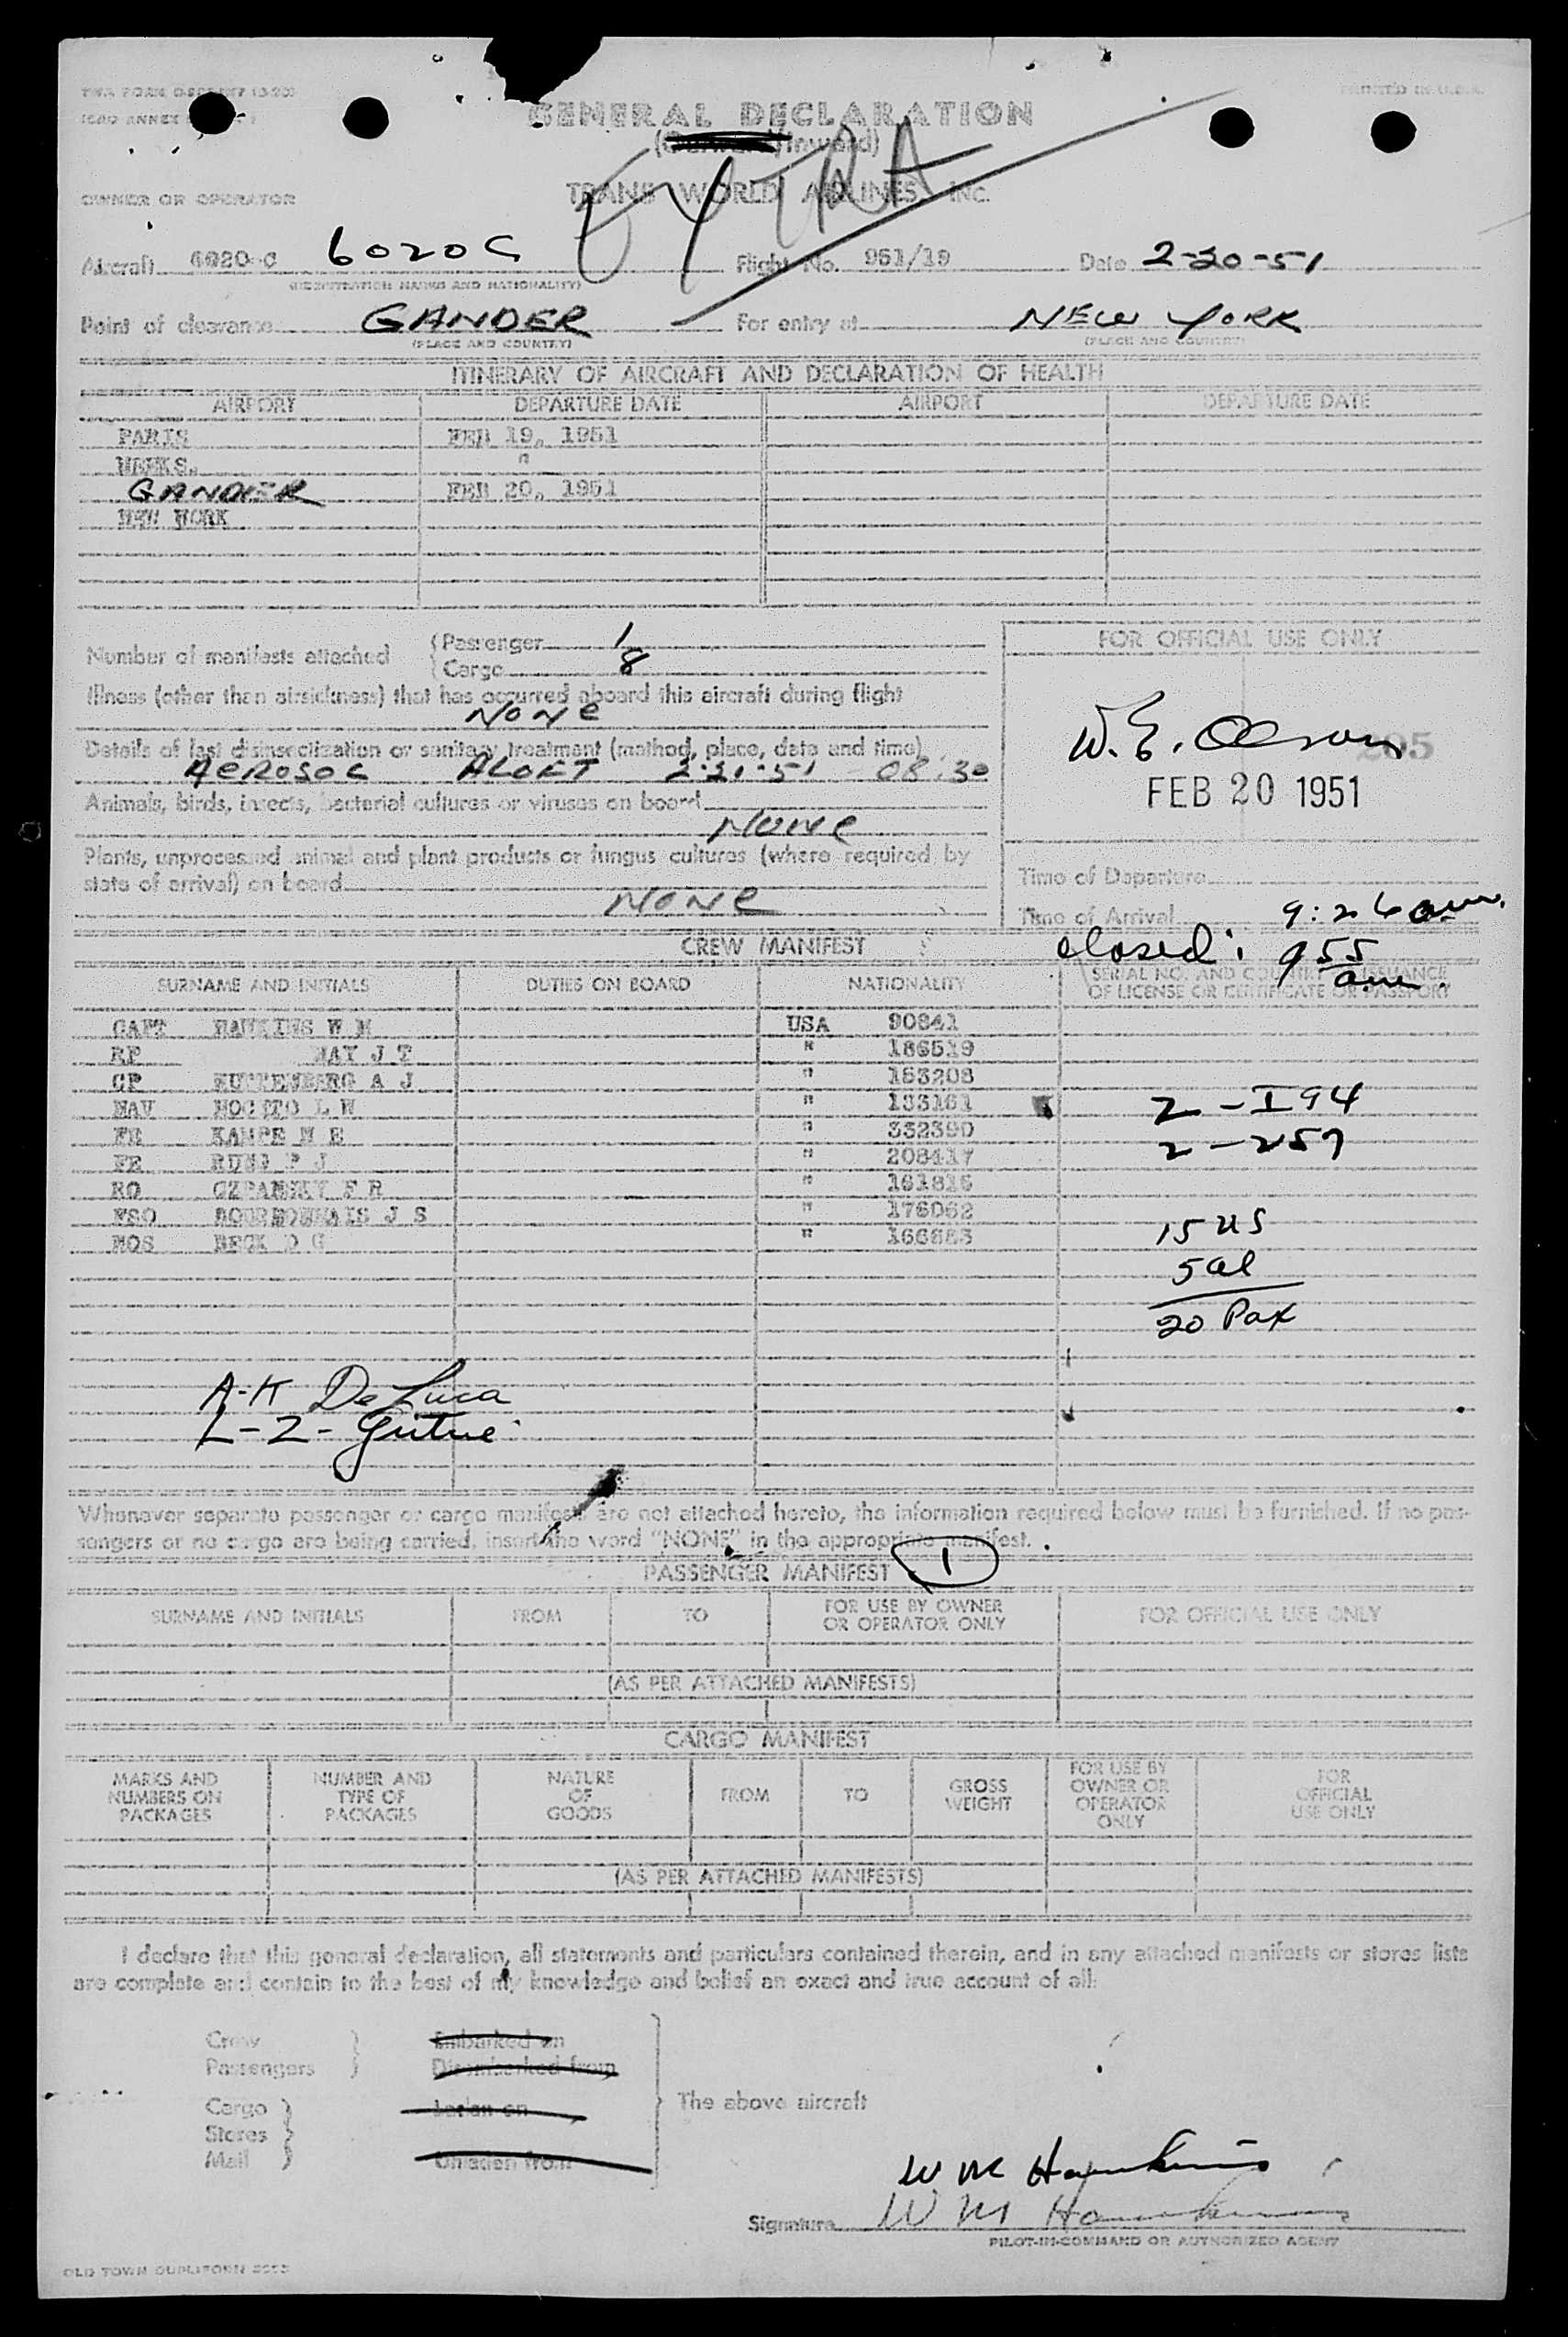 GENERAL DECLARATION
EXTRA
TRANS WORLD AIRLINES, INC.
OWNER OR OPERATOR
Aircraft 6020 C Flight No. 961/19 Date 2-20-51
(REGISTRATION MARKS AND NATIONALITY)
Point of clearance GANDER For entry at NEW YORK
(PLACE AND COUNTRY) (PLACE AND COUNTRY)
ITINERARY OF AIRCRAFT AND DECLARATION OF HEALTH
AIRPORT DEPARTURE DATE AIRPORT DEPARTURE DATE
PARIS FEB 19, 1951
"
GANDER FEB 20, 1951
NEW YORK
Number of manifests attached
Passenger 1
Cargo 8
FOR OFFICIAL USE ONLY
Illness (other than airsickness) that has occurred aboard this aircraft during flight
None
Details of last disinsectization or sanitary treatment (method, place, date and time)
AEROSOL ALOFT 2-21-51 08:30
W. E. Olson
FEB 20 1951
Animals, birds, insects, bacterial cultures or viruses on board
None
Plants, unprocessed animal and plant products or fungus cultures (where required by
state of arrival) on board
None
Time of Departure
Time of Arrival 9:26 am.
closed: 955 am.
CREW MANIFEST
SURNAME AND INITIALS DUTIES ON BOARD NATIONALITY SERIAL NO. AND COUNTRY OF ISSUANCE
OF LICENSE OR CERTIFICATE OR PASSPORT
CAPT HAWKINS W M USA 90841
RP HAY J T " 186519
CP A J "
NAV L W " 133161
FR KAMPE M E " 332390
FE P J " 208417
RO F R "
J S " 176062
HOS BECK D G "
2 - I94
2 - 257
15 US
5 al
20 Pax
A-K De Luca
L-Z -
Whenever separate passenger or cargo manifests are not attached hereto, the information required below must be furnished. If no pas-
sengers or no cargo are being carried, insert the word "NONE" in the appropriate manifest.
PASSENGER MANIFEST 1
SURNAME AND INITIALS FROM TO FOR USE BY OWNER
OR OPERATOR ONLY FOR OFFICIAL USE ONLY
(AS PER ATTACHED MANIFESTS)
CARGO MANIFEST
MARKS AND
NUMBERS ON
PACKAGES
NUMBER AND
TYPE OF
PACKAGES
NATURE
OF
GOODS
FROM
TO
GROSS
WEIGHT
FOR USE BY
OWNER OR
OPERATOR
ONLY
FOR
OFFICIAL
USE ONLY
(AS PER ATTACHED MANIFESTS)
I declare that this general declaration, all statements and particulars contained therein, and in any attached manifests or stores lists
are complete and contain to the best of my knowledge and belief an exact and true account of all:
Crew
Passengers
Cargo
Stores
Mail
Embarked on
Disembarked from
Laden on
Unladen from
The above aircraft
W M Hawkins
Signature W M Hawkins
PILOT-IN-COMMAND OR AUTHORIZED AGENT